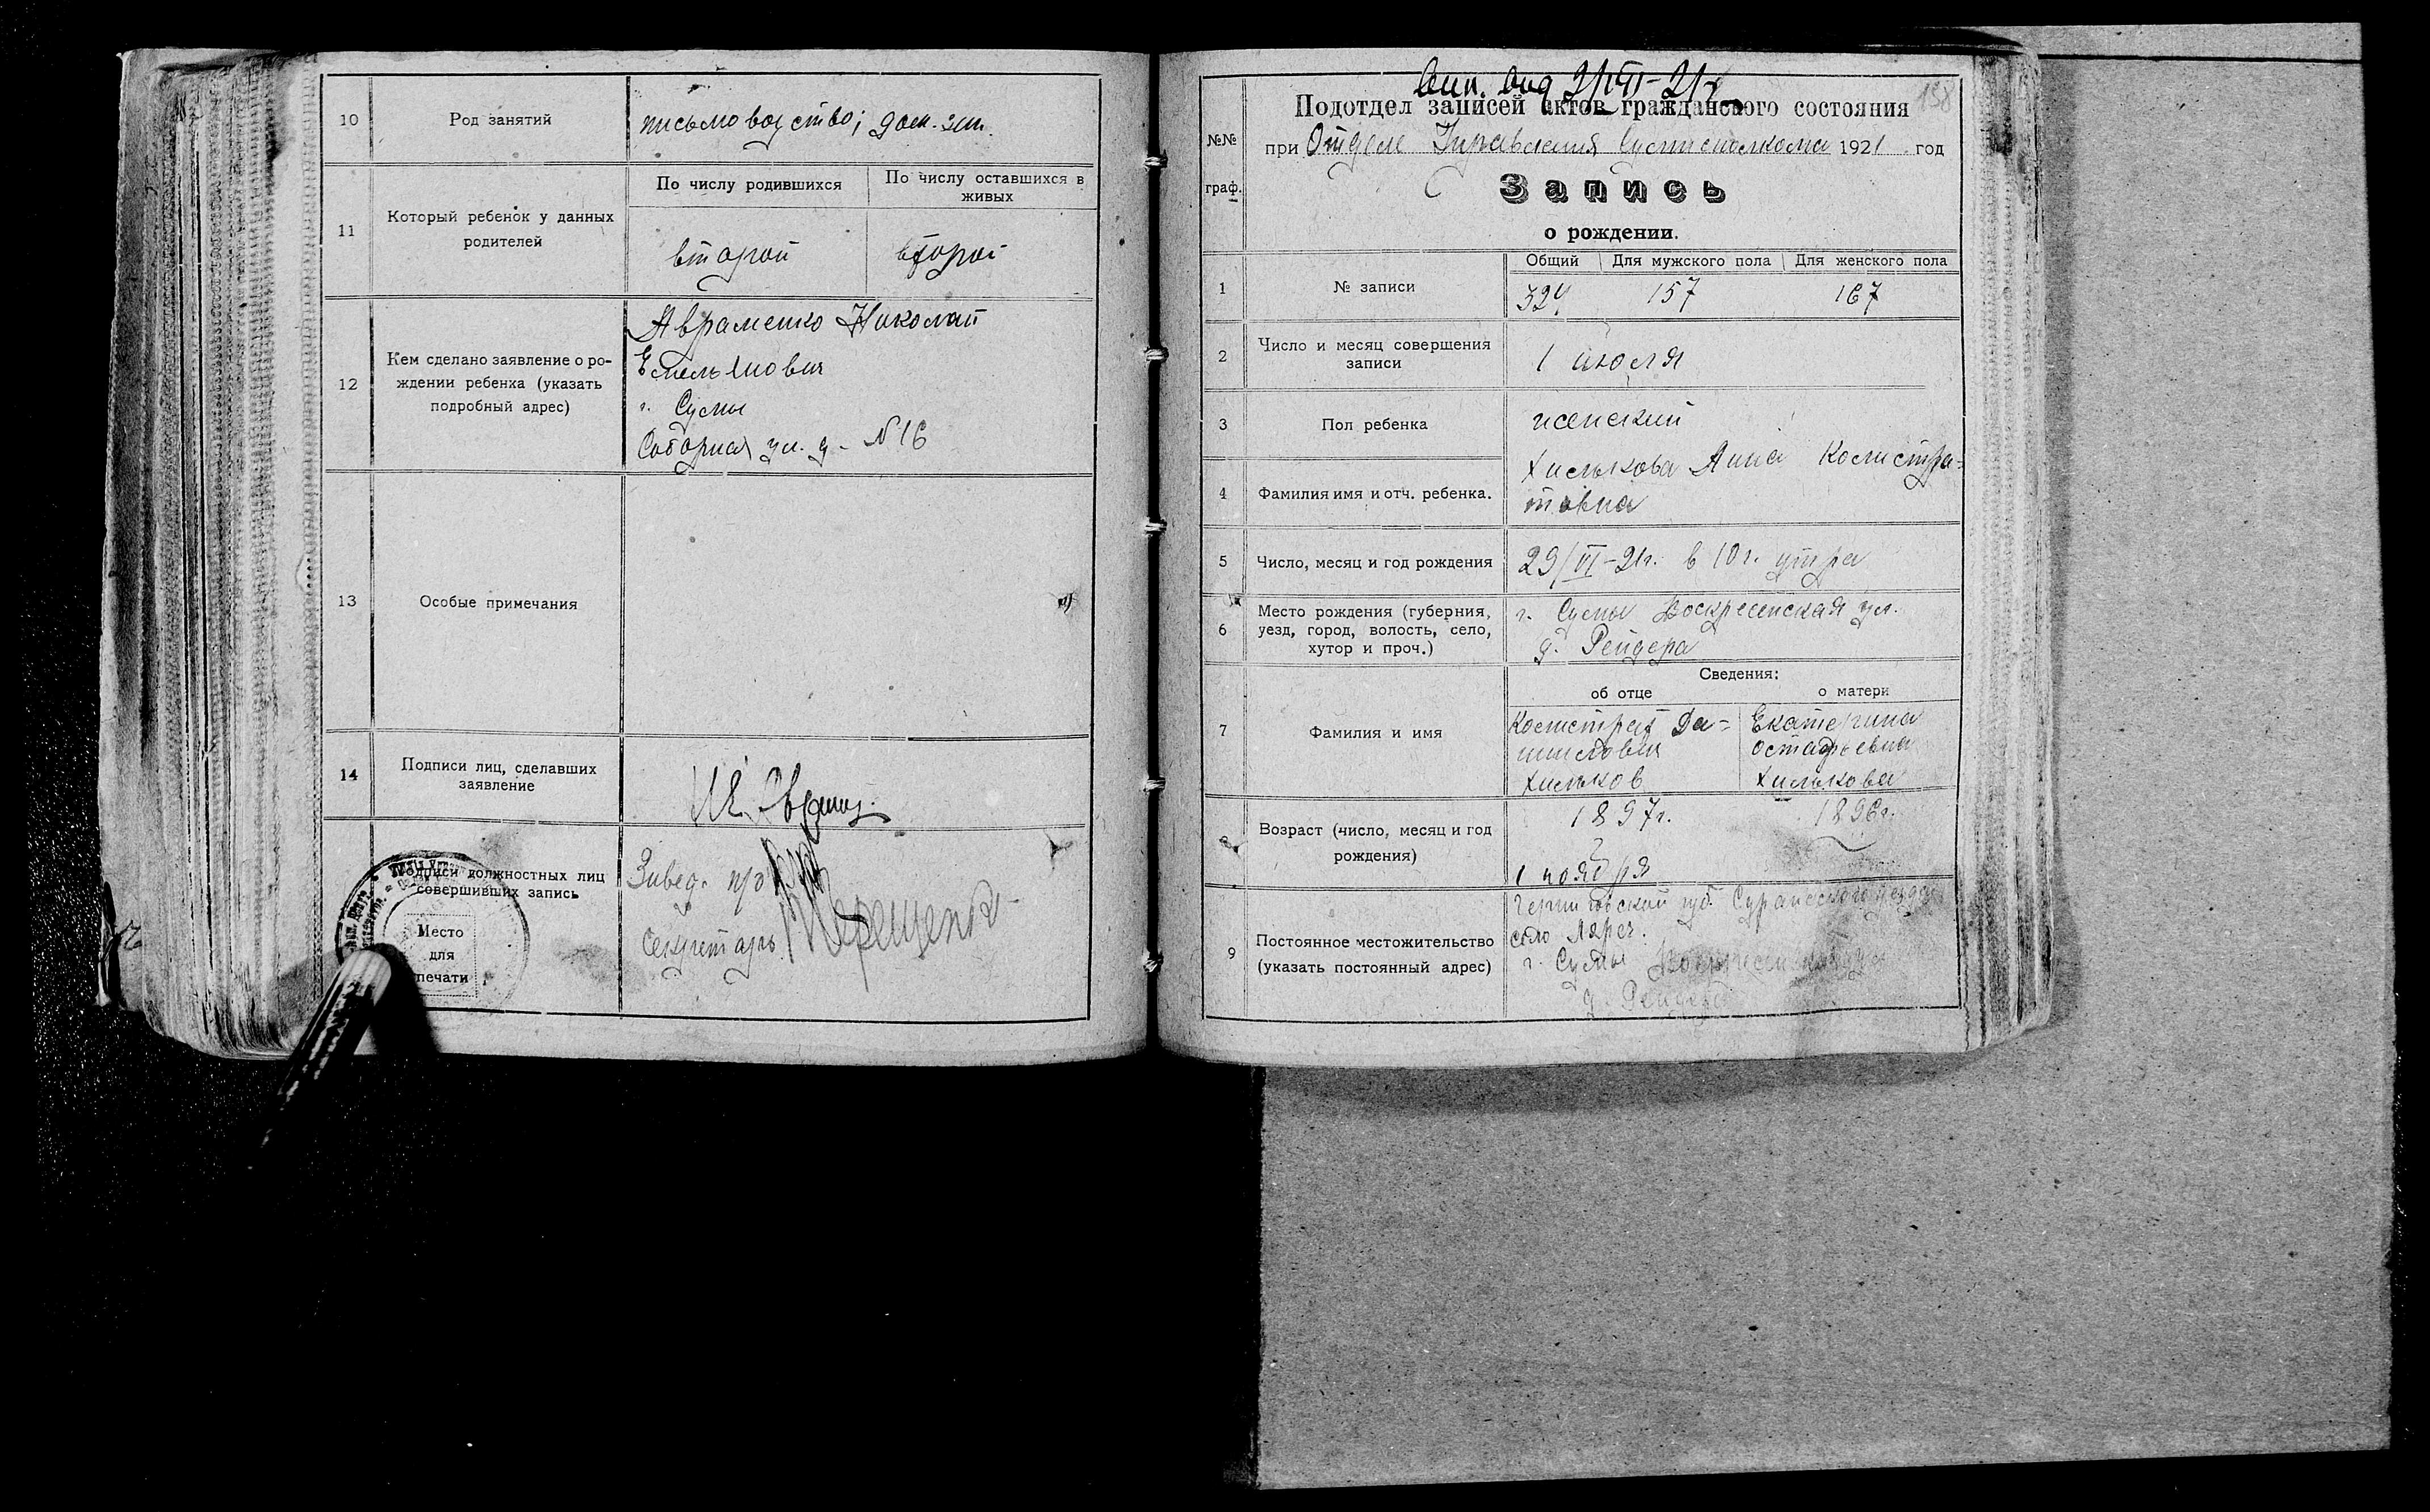 10
Род занятий
письмоводство; дом. зан.
11
Который ребенок у данных
родителей
По числу родившихся
По числу оставшихся в
живых
второй
второй
12
Кем сделано заявление о ро-
ждении ребенка (указать
подробный адрес)
Авраменко Николай
Емельянович
г. Сумы
Соборная ул. д. №16
13
Особые примечания
14
Подписи лиц, сделавших
заявление
Подписи должностных лиц
совершивших запись
Завед. п/о
Секретарь Терещенко
Место
для
печати
158
Подотдел записей актов гражданского состояния
№№
граф.
при Отделе Управления Сумисполкома 1921 год
Запись
о рождении.
1
№ записи
Общий
Для мужского пола
Для женского пола
324
157
167
2
Число и месяц совершения
записи
1 июля
3
Пол ребенка
женский
4
Фамилия имя и отч. ребенка.
Хилькова Анна Калистра-
товна
5
Число, месяц и год рождения
29/VI-21г. в 10 г. утра
6
Место рождения (губерния,
уезд, город, волость, село,
хутор и проч.)
г. Сумы Воскресенская ул.
д. Рейдера
Сведения:
об отце
о матери
7
Фамилия и имя
Калистрат Да-
нилович
Хильков
Екатерина
Остафьевна
Хилькова
8
Возраст (число, месяц и год
рождения)
1897г.
1 ноября
1896г.
9
Постоянное местожительство
(указать постоянный адрес)
Черниговской губ. Суражского уезда
село
г. Сумы Воскресенская ул.
д. Рейдера